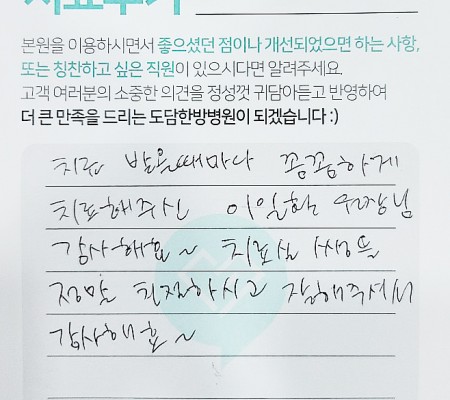 치료후기
본원을 이용하시면서 좋으셨던 점이나 개선되었으면 하는 사항,
또는 칭찬하고 싶은 직원이 있으시다면 알려주세요.
고객 여러분의 소중한 의견을 정성껏 귀담아듣고 반영하여
더 큰 만족을 드리는 도담한방병원이 되겠습니다 :)
치료 받을때마다 꼼꼼하게
치료해주신 이일화 원장님
감사해요~ 치료실 쌤들
정말 친절하시고 잘해주셔서
감사해효~